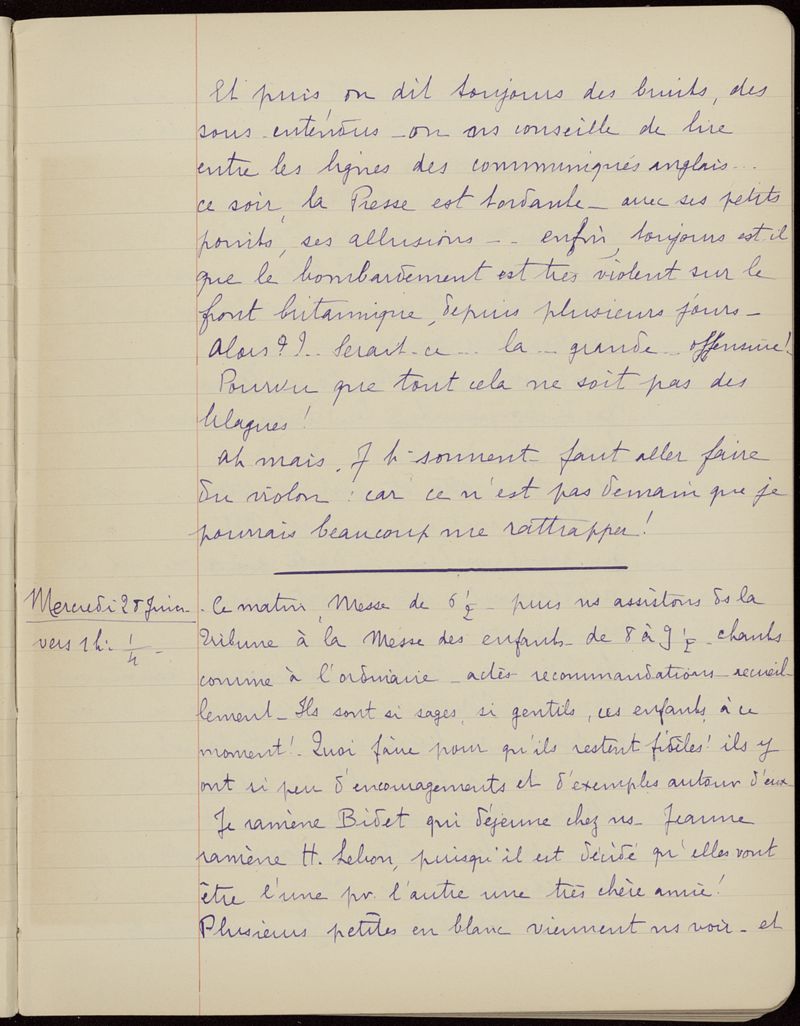 Et puis, on dit toujours des bruits, des
sous-entendus - on ns conseille de lire
entre les lignes des communiqués anglais...
ce soir, la Presse est tordante - avec ses petits
points, ses allusions - - enfin, toujours est-il
que le bombardement est très violent sur le
front britannique, depuis plusieurs jours -
Alors ? ! .. Serait-ce ... la ... grande .. offensive !
Pourvu que tout cela ne soit pas des
blagues !
Ah mais, 7 h - sonnent - faut aller faire
du violon : car ce n'est pas demain que je
pourrais beaucoup me rattrapper !
Mercredi 28 Juin
vers 1h. 1/4 -
- Ce matin, Messe de 6 1/2 - puis ns assistons ds la
Tribune à la Messe des enfants - de 8 à 9 1/2 - chants
comme à l'ordinaire - actes - recommandations - recueil-
lement - Ils sont si sages, si gentils, ces enfants, à ce
moment ! Quoi faire pour qu'ils restent fidèles ! ils y
ont si peu d'encouragements et d'exemples autour d'eux -
Je ramène Bidet qui déjeune chez ns - Jeanne
ramène H. Lebon, puisqu'il est décidé qu'elles vont
être l'une pr. l'autre une très chère amie !
Plusieurs petites en blanc viennent ns voir - et